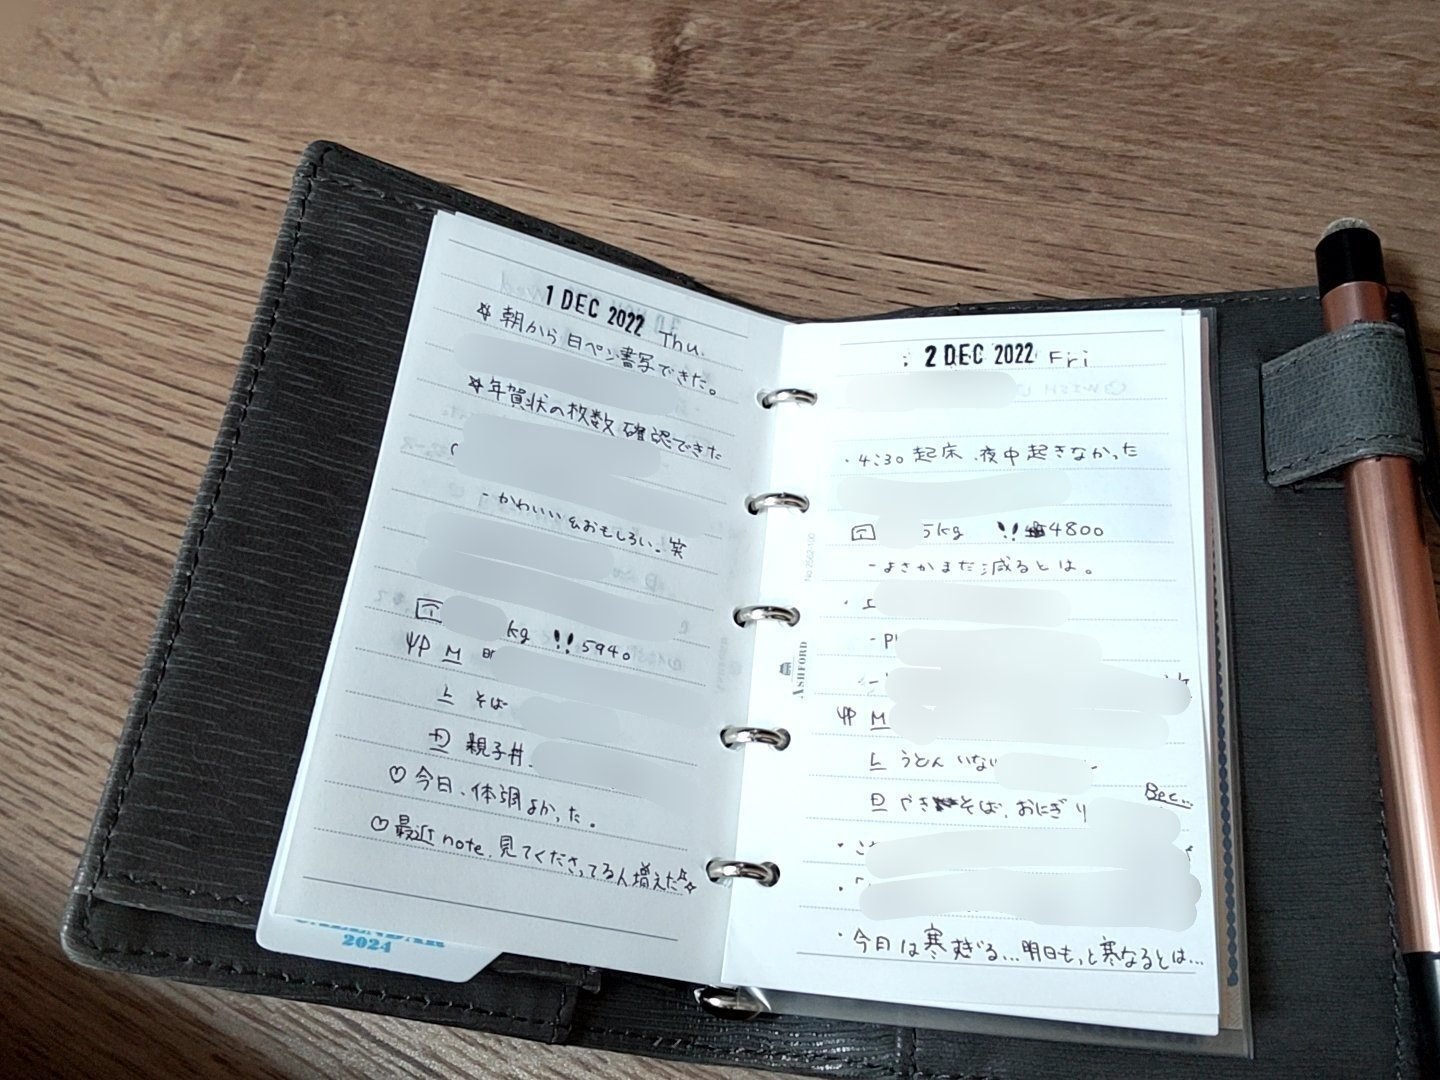 1 DEC 2022 Thu.
☆朝から日ペン書写できた。
☆年賀状の枚数確認できた
- かわいい&おもしろい。笑
kg !! 5940
M
L そば
D 親子丼.
♡今日、体調よかった。
♡最近note、見てくださってる人増えた☆
CALENDAR
2024
2 DEC 2022 Fri
・4:30 起床、夜中起きなかった
5kg !! 4800
- まさかまた減るとは。
M
L うどん いない
D やきそば、おにぎり
・今日は寒すぎる...明日もっと寒なるとは...
No.2562-100
ASHFORD